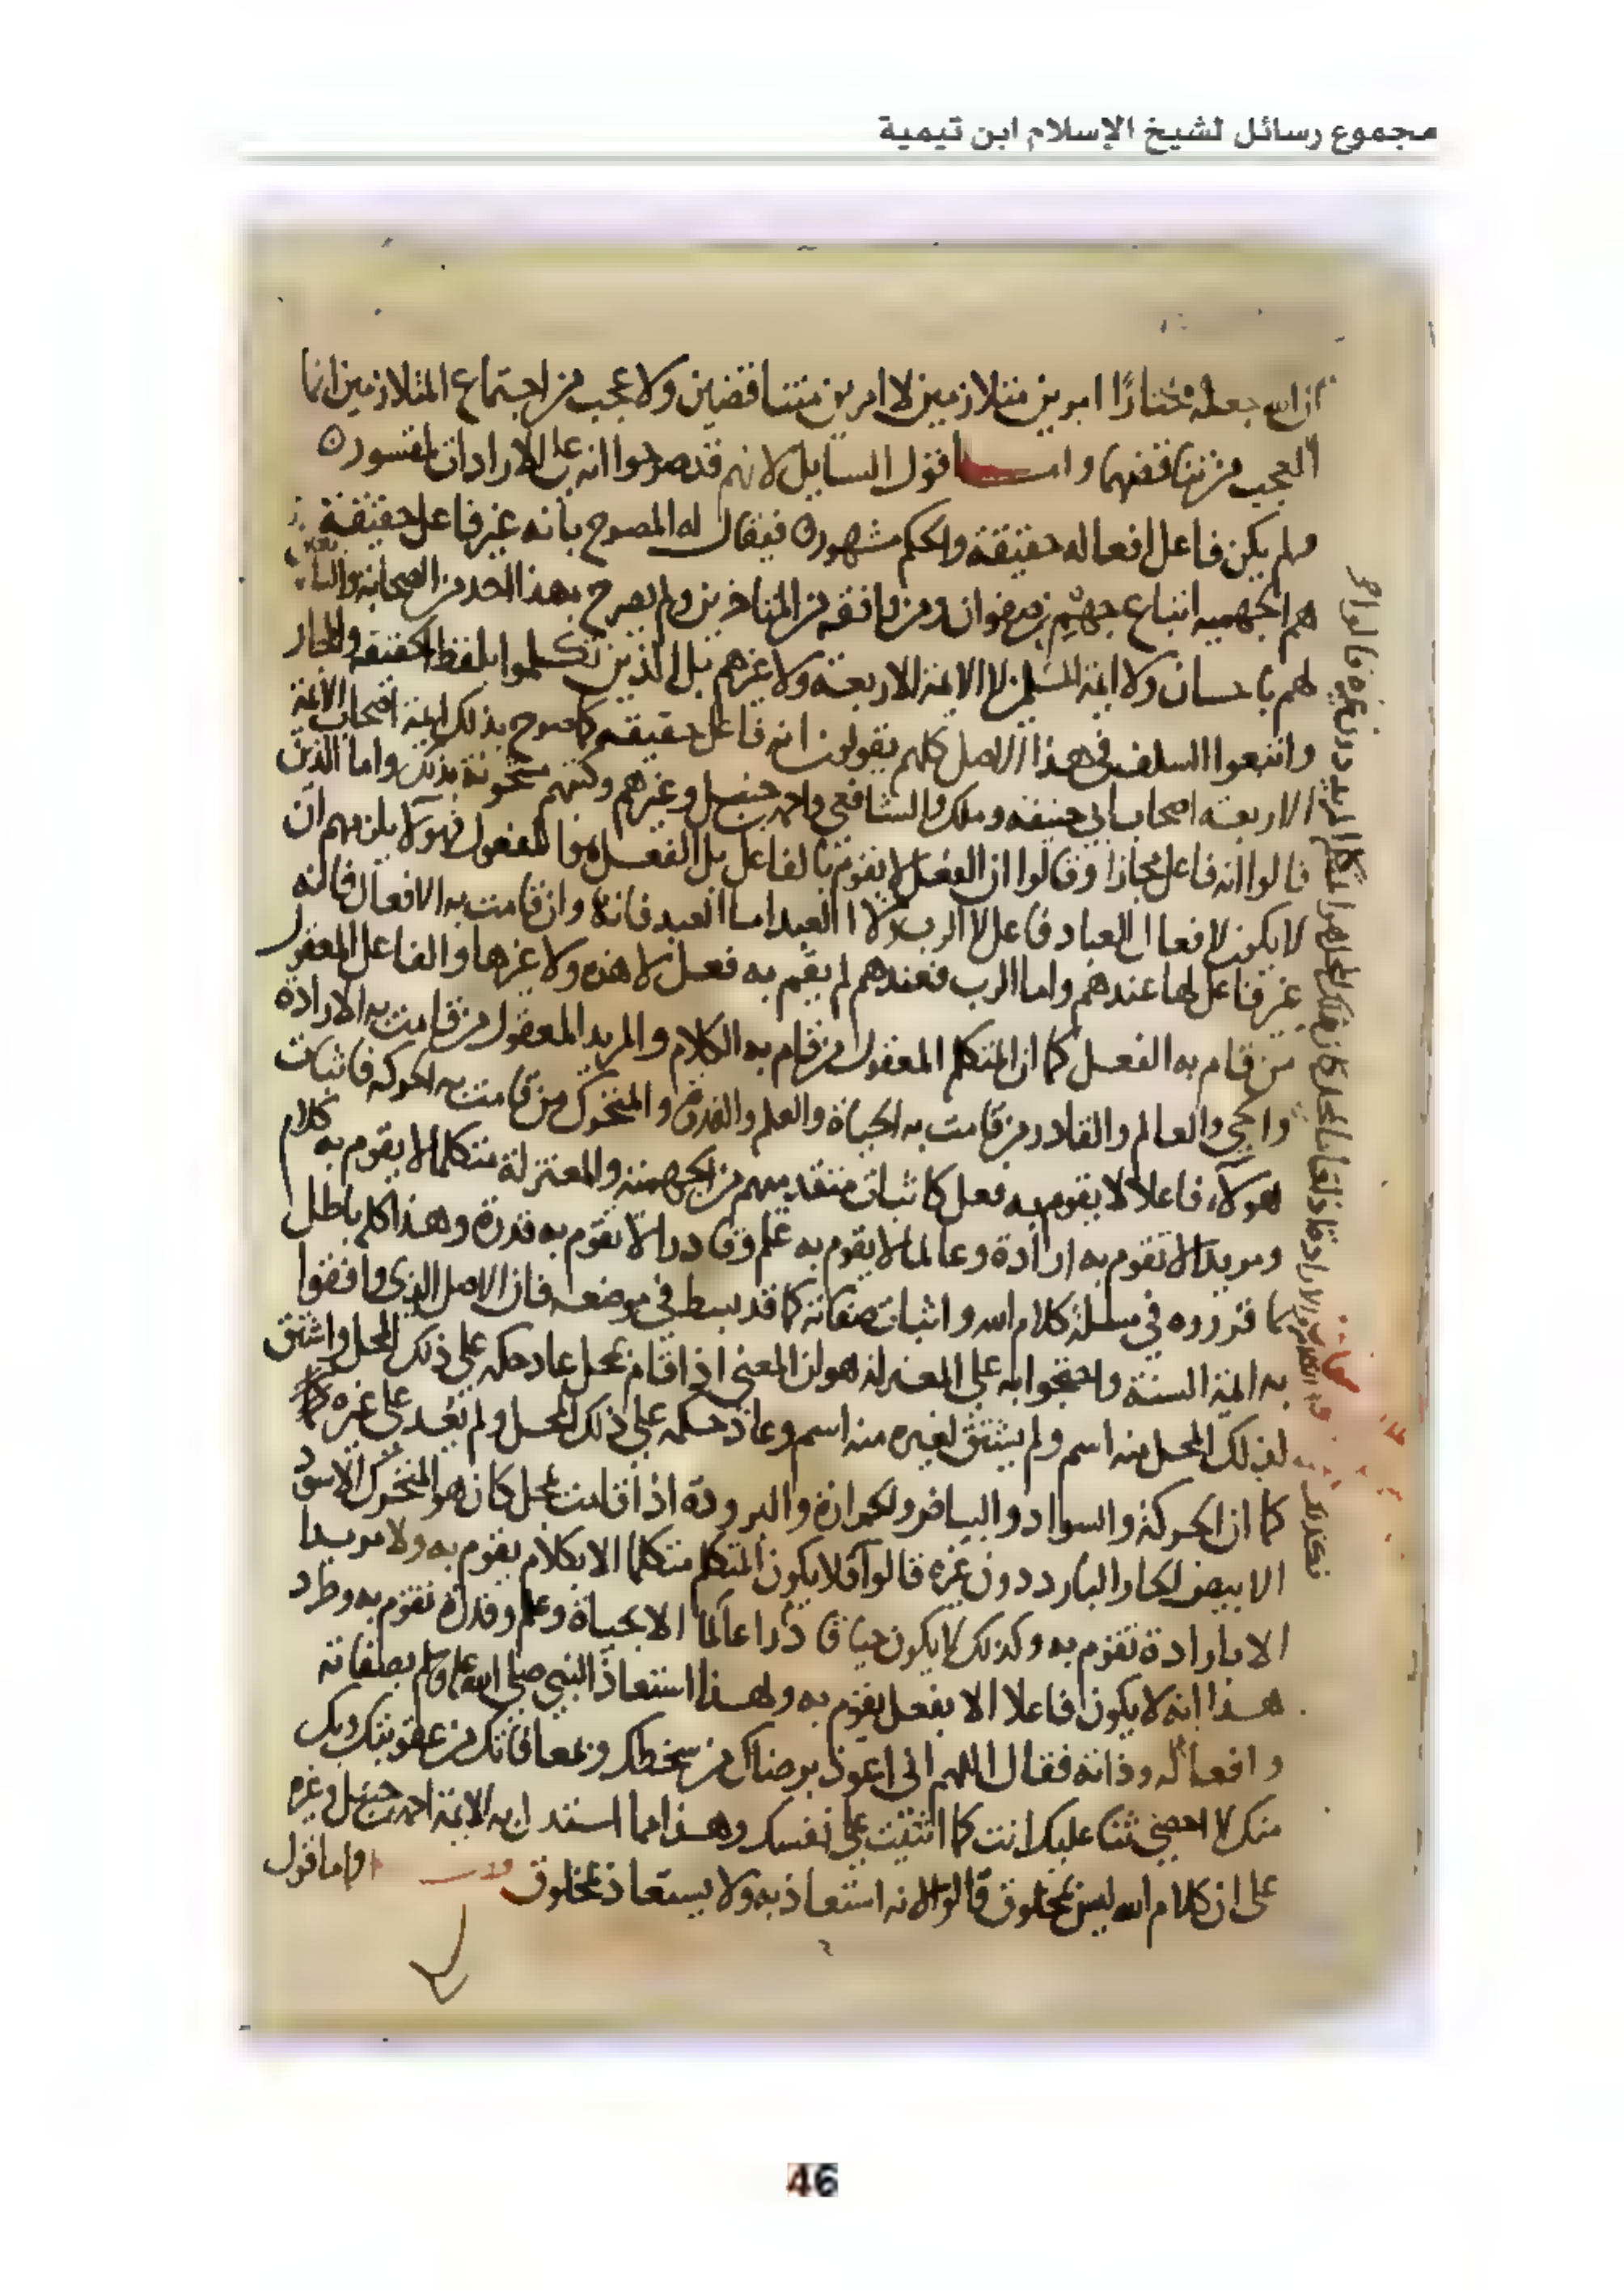 مجموع رسائل لشيخ الإسلام ابن تيمية
ان الله جعله مختارًا امرين متلازمين لا امرين متناقضين ولا عجب من اجتماع المتلازمين انما
العجب من تناقضهما واما قول السايل لانهم قد صرحوا انه على الارادات لمقسور
ولم يكن فاعل افعاله حقيقة والحكم مشهور فيقال له المصرح بانه غير فاعل حقيقة
هم الجهميه اتباع جهم بن صفوان ومن وافقه من المتاخرين ولم يصرح بهذا احد من الصحابة والتابعين
لهم باحسان ولا ايمة المسلمين لا الايمة الاربعة ولا غيرهم بل الذين تكلموا بلفظ الحقيقه والمجاز
واتبعوا السلف في هذا الاصل كلهم يقولون انه فاعل حقيقه كما صرح بذلك ايمة اصحاب الايمة
الاربعة اصحاب ابي حنيفه وملك والشافعي واحمد بن حنبل وغيرهم وكتبهم مشحونة بذلك واما الذين
قالوا انه فاعل مجازا وقالوا ان الفعل لا يقوم بالفاعل بل الفعل هو المفعول فهولآ يلزمهم ان
لا يكون لافعال العباد فاعل لا الرب ولا العبد اما العبد فانه وان قامت به الافعال فانه
غير فاعل لها عندهم واما الرب فعندهم لم يقم به فعل لا هذه ولا غيرها والفاعل المعقول
من قام به الفعل كما ان المتكلم المعقول من قام به الكلام والمريد المعقول من قامت به الارادة
والحي والعالم والقادر من قامت به الحياة والعلم والقدرة والمتحرك من قامت به الحركه فاثبات
هولآء فاعلا لا يقوم به فعل كاثبات متقدميهم من الجهمية والمعتزلة متكلما لا يقوم به كلام
ومريدا لا تقوم به ارادة وعالما لا يقوم به علم وقادرا لا تقوم به قدرة وهذا كله باطل
كما قرروه في مسلة كلام الله واثبات صفاته كما قد بسط في موضعه فان الاصل الذي وافقوا
به ايمة السنة واحتجوا به على المعتزلة هو ان المعنى اذا قام بمحل عاد حكمه على ذلك المحل واشتق
لذلك المحل منه اسم ولم يشتق لغيره منه اسم وعاد حكمه على ذلك المحل ولم يعد على غيره
كما ان الحركة والسواد والبياض والحرارة والبرودة اذا قامت بمحل كان هو المتحرك الاسود
الابيض الحار البارد دون غيره قالوا فلا يكون المتكلم متكلما الا بكلام يقوم به ولا مريدا
الا بارادة تقوم به وكذلك لا يكون حيا قادرا عالما الا بحياة وعلم وقدرة تقوم به وطرد
هذا انه لا يكون فاعلا الا بفعل يقوم به ولهذا استعاذ النبي صلى الله عليه وسلم بصفاته
وافعاله وذاته فقال اللهم اني اعوذ برضاك من سخطك وبمعافاتك من عقوبتك وبك
منك لا احصي ثنا عليك انت كما اثنيت على نفسك وهذا مما استدل به الايمة احمد بن حنبل وغيره
على ان كلام الله ليس بمخلوق قالوا لانه استعاذ به ولا يستعاذ بمخلوق
واما قول
46